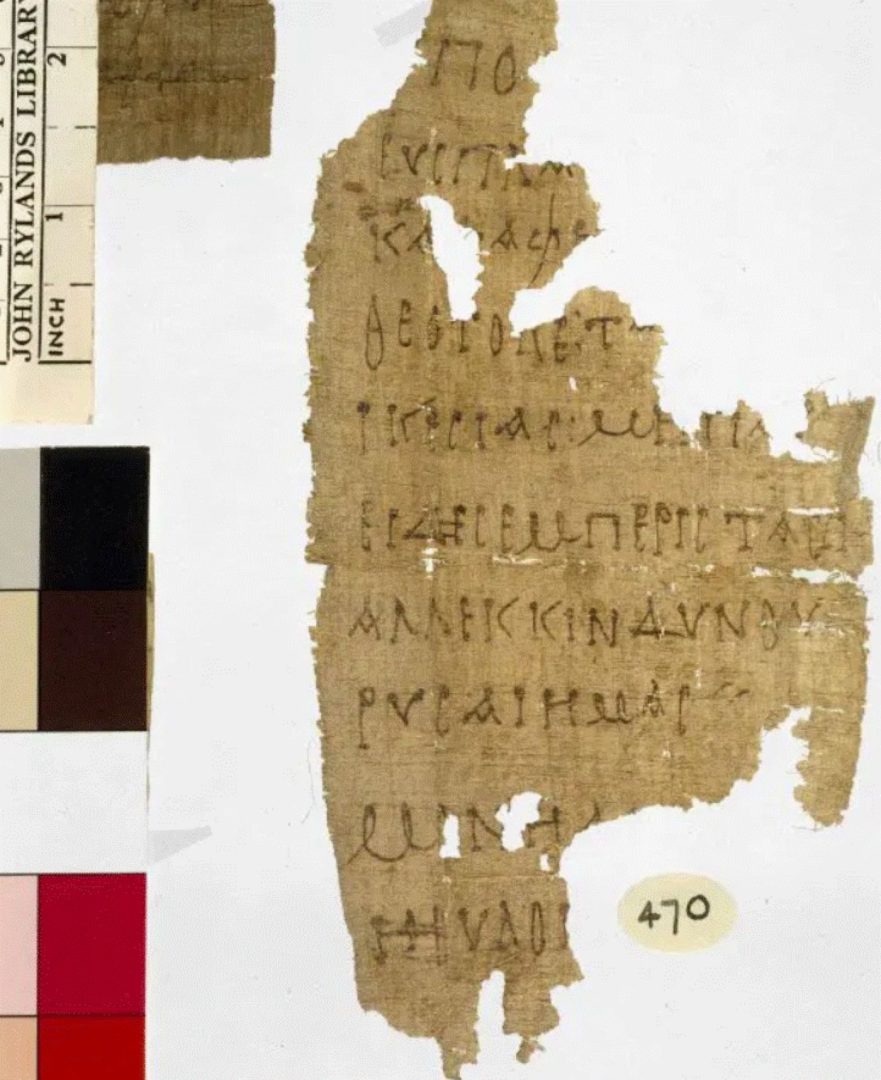 JOHN RYLANDS LIBRARY
INCH 1 2
ΠΟ
ΕΥCΠΛ
ΚΑΤΑΦΕ
ΘΕΟΤΟΚΕΤ
ΙΚΕCΙΑCΜΗΠΑ
ΕΙΔΗCΕΜΠΕΡΙCΤΑCΕΙ
ΑΛΛΕΚΚΙΝΔΥΝΟΥ
ΡΥCΑΙΗΜΑC
ΜΟΝΗ
ΗΕΥΛΟΓ
470